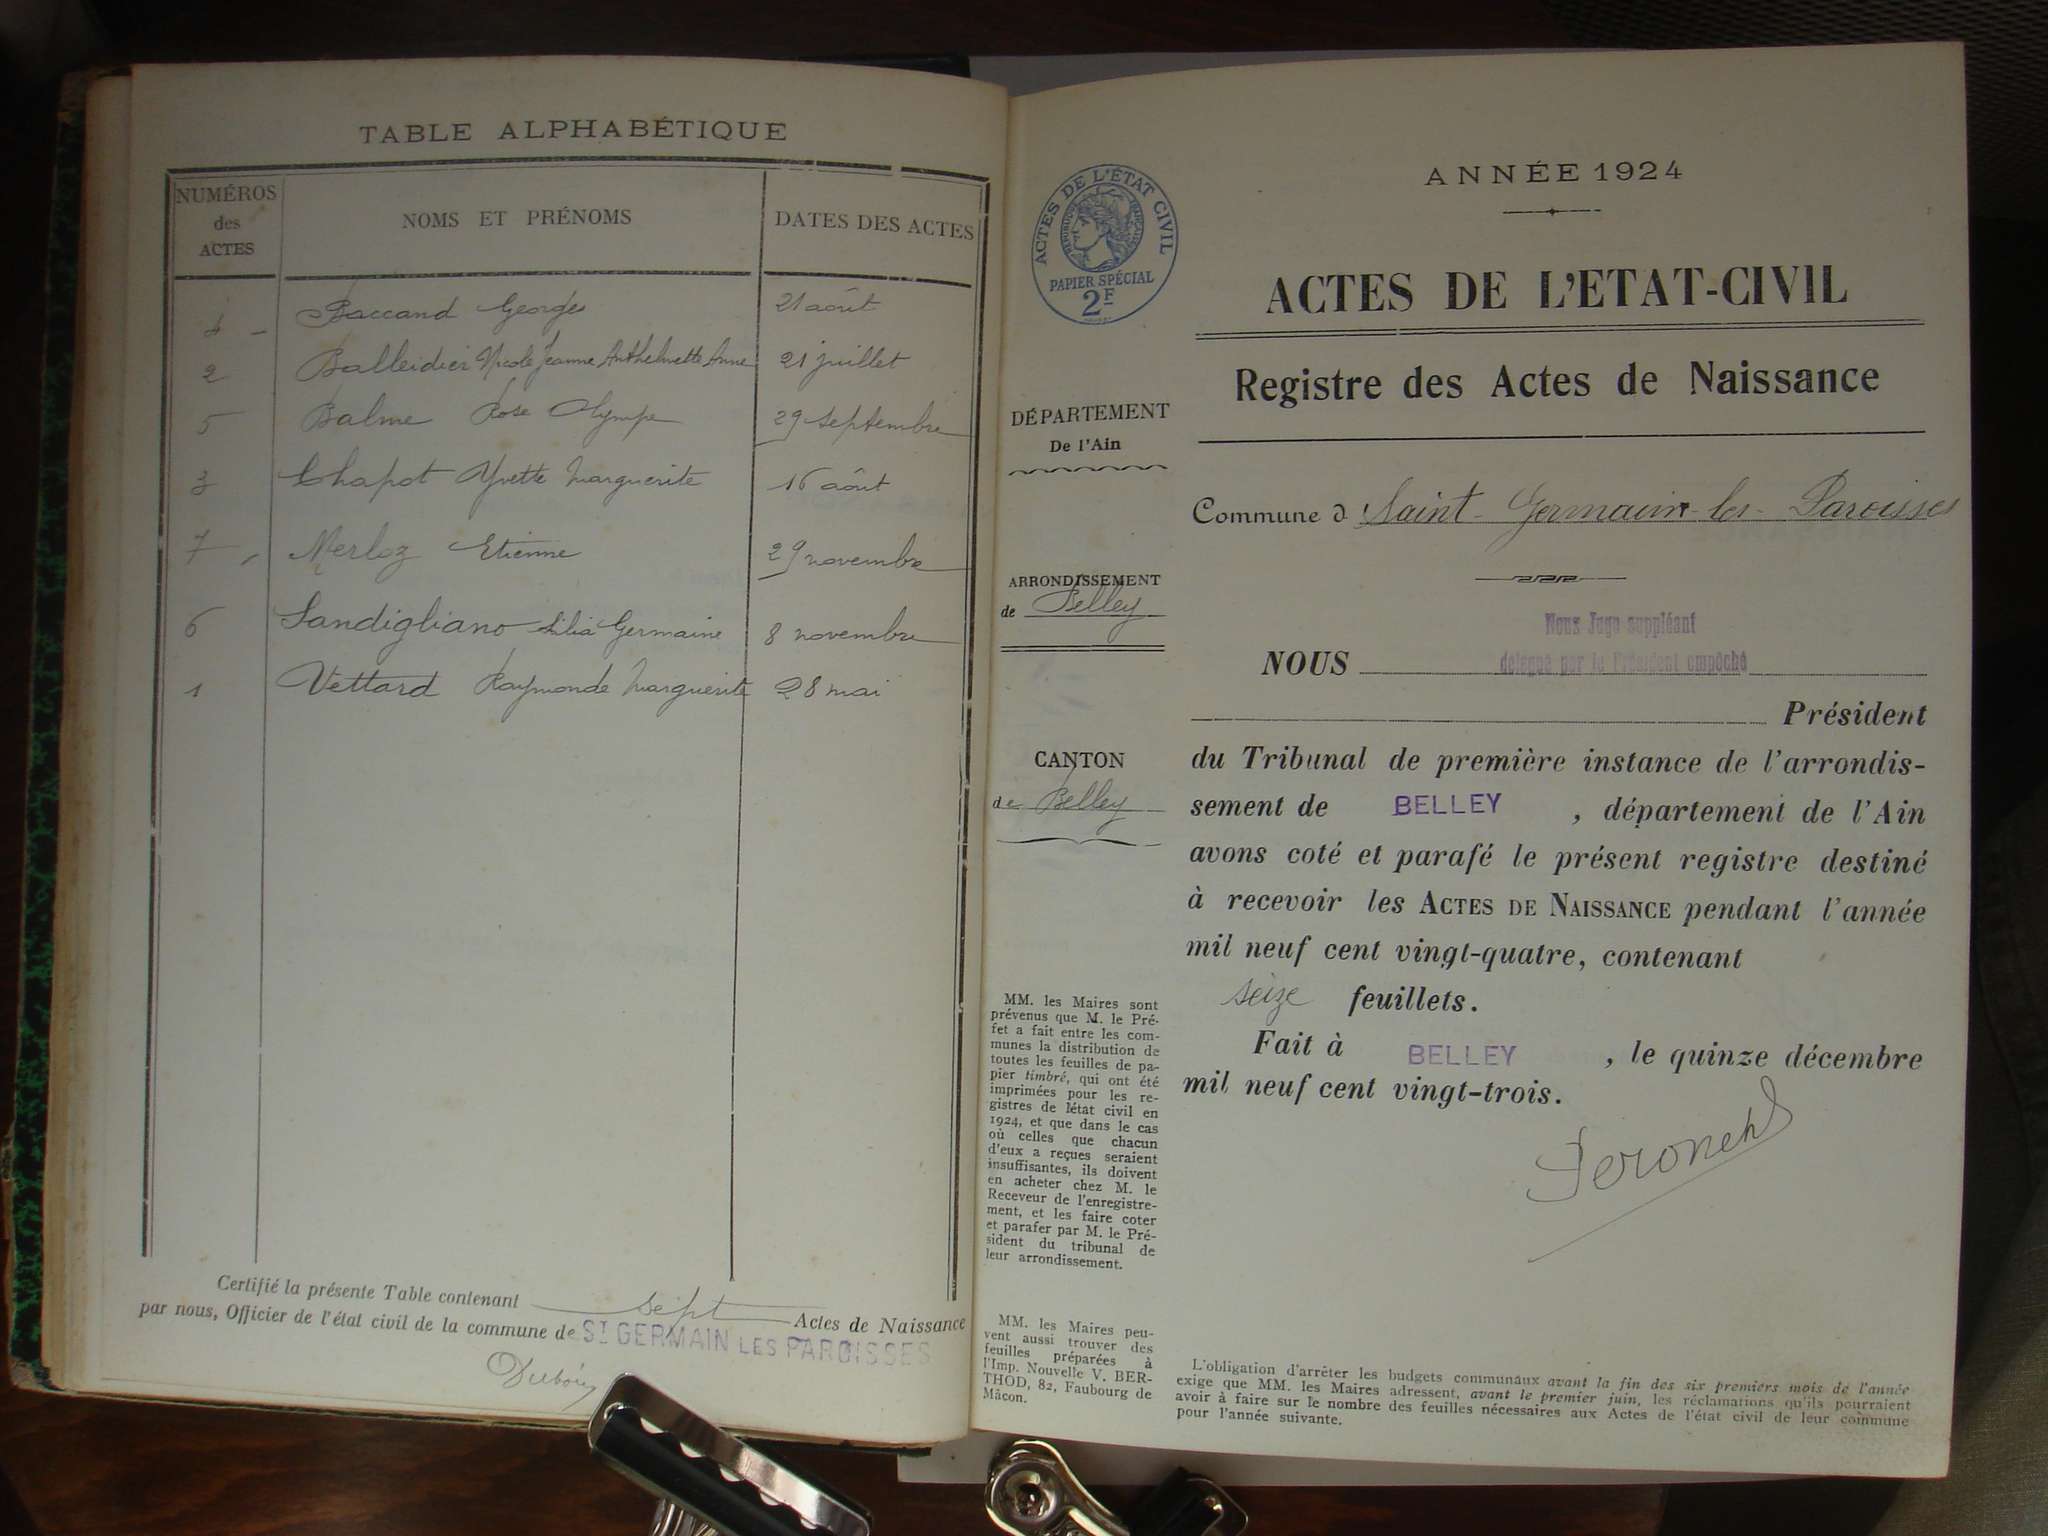 TABLE ALPHABÉTIQUE
NUMÉROS des ACTES
NOMS ET PRÉNOMS
DATES DES ACTES
4 Baccand Georges 21 août
2 Balleidier Nicole Jeanne Anthelmette Anne 21 juillet
5 Balme Rose Olympe 29 septembre
3 Chapot Yvette Marguerite 16 août
7 Merloz Etienne 29 novembre
6 Sandigliano Lilia Germaine 8 novembre
1 Vettard Raymonde Marguerite 28 mai
Certifié la présente Table contenant sept Actes de Naissance
par nous, Officier de l'état civil de la commune de ST GERMAIN LES PAROISSES
ACTES DE L'ÉTAT CIVIL
RÉPUBLIQUE FRANÇAISE
PAPIER SPÉCIAL
2F
DÉPARTEMENT
De l'Ain
ARRONDISSEMENT
de Belley
CANTON
de Belley
MM. les Maires sont
prévenus que M. le Pré-
fet a fait entre les com-
munes la distribution de
toutes les feuilles de pa-
pier timbré, qui ont été
imprimées pour les re-
gistres de l'état civil en
1924, et que dans le cas
où celles que chacun
d'eux a reçues seraient
insuffisantes, ils doivent
en acheter chez M. le
Receveur de l'enregistre-
ment, et les faire coter
et parafer par M. le Pré-
sident du tribunal de
leur arrondissement.
MM. les Maires peu-
vent aussi trouver des
feuilles préparées à
l'Imp. Nouvelle V. BER-
THOD, 82, Faubourg de
Mâcon.
ANNÉE 1924
ACTES DE L'ETAT-CIVIL
Registre des Actes de Naissance
Commune d Saint-Germain-les-Paroisses
Nous Juge suppléant
NOUS délégué par le Président empêché
Président
du Tribunal de première instance de l'arrondis-
sement de BELLEY , département de l'Ain
avons coté et parafé le présent registre destiné
à recevoir les ACTES DE NAISSANCE pendant l'année
mil neuf cent vingt-quatre, contenant
seize feuillets.
Fait à BELLEY , le quinze décembre
mil neuf cent vingt-trois.
L'obligation d'arrêter les budgets communaux avant la fin des six premiers mois de l'année
exige que MM. les Maires adressent, avant le premier juin, les réclamations qu'ils pourraient
avoir à faire sur le nombre des feuilles nécessaires aux Actes de l'état civil de leur commune
pour l'année suivante.